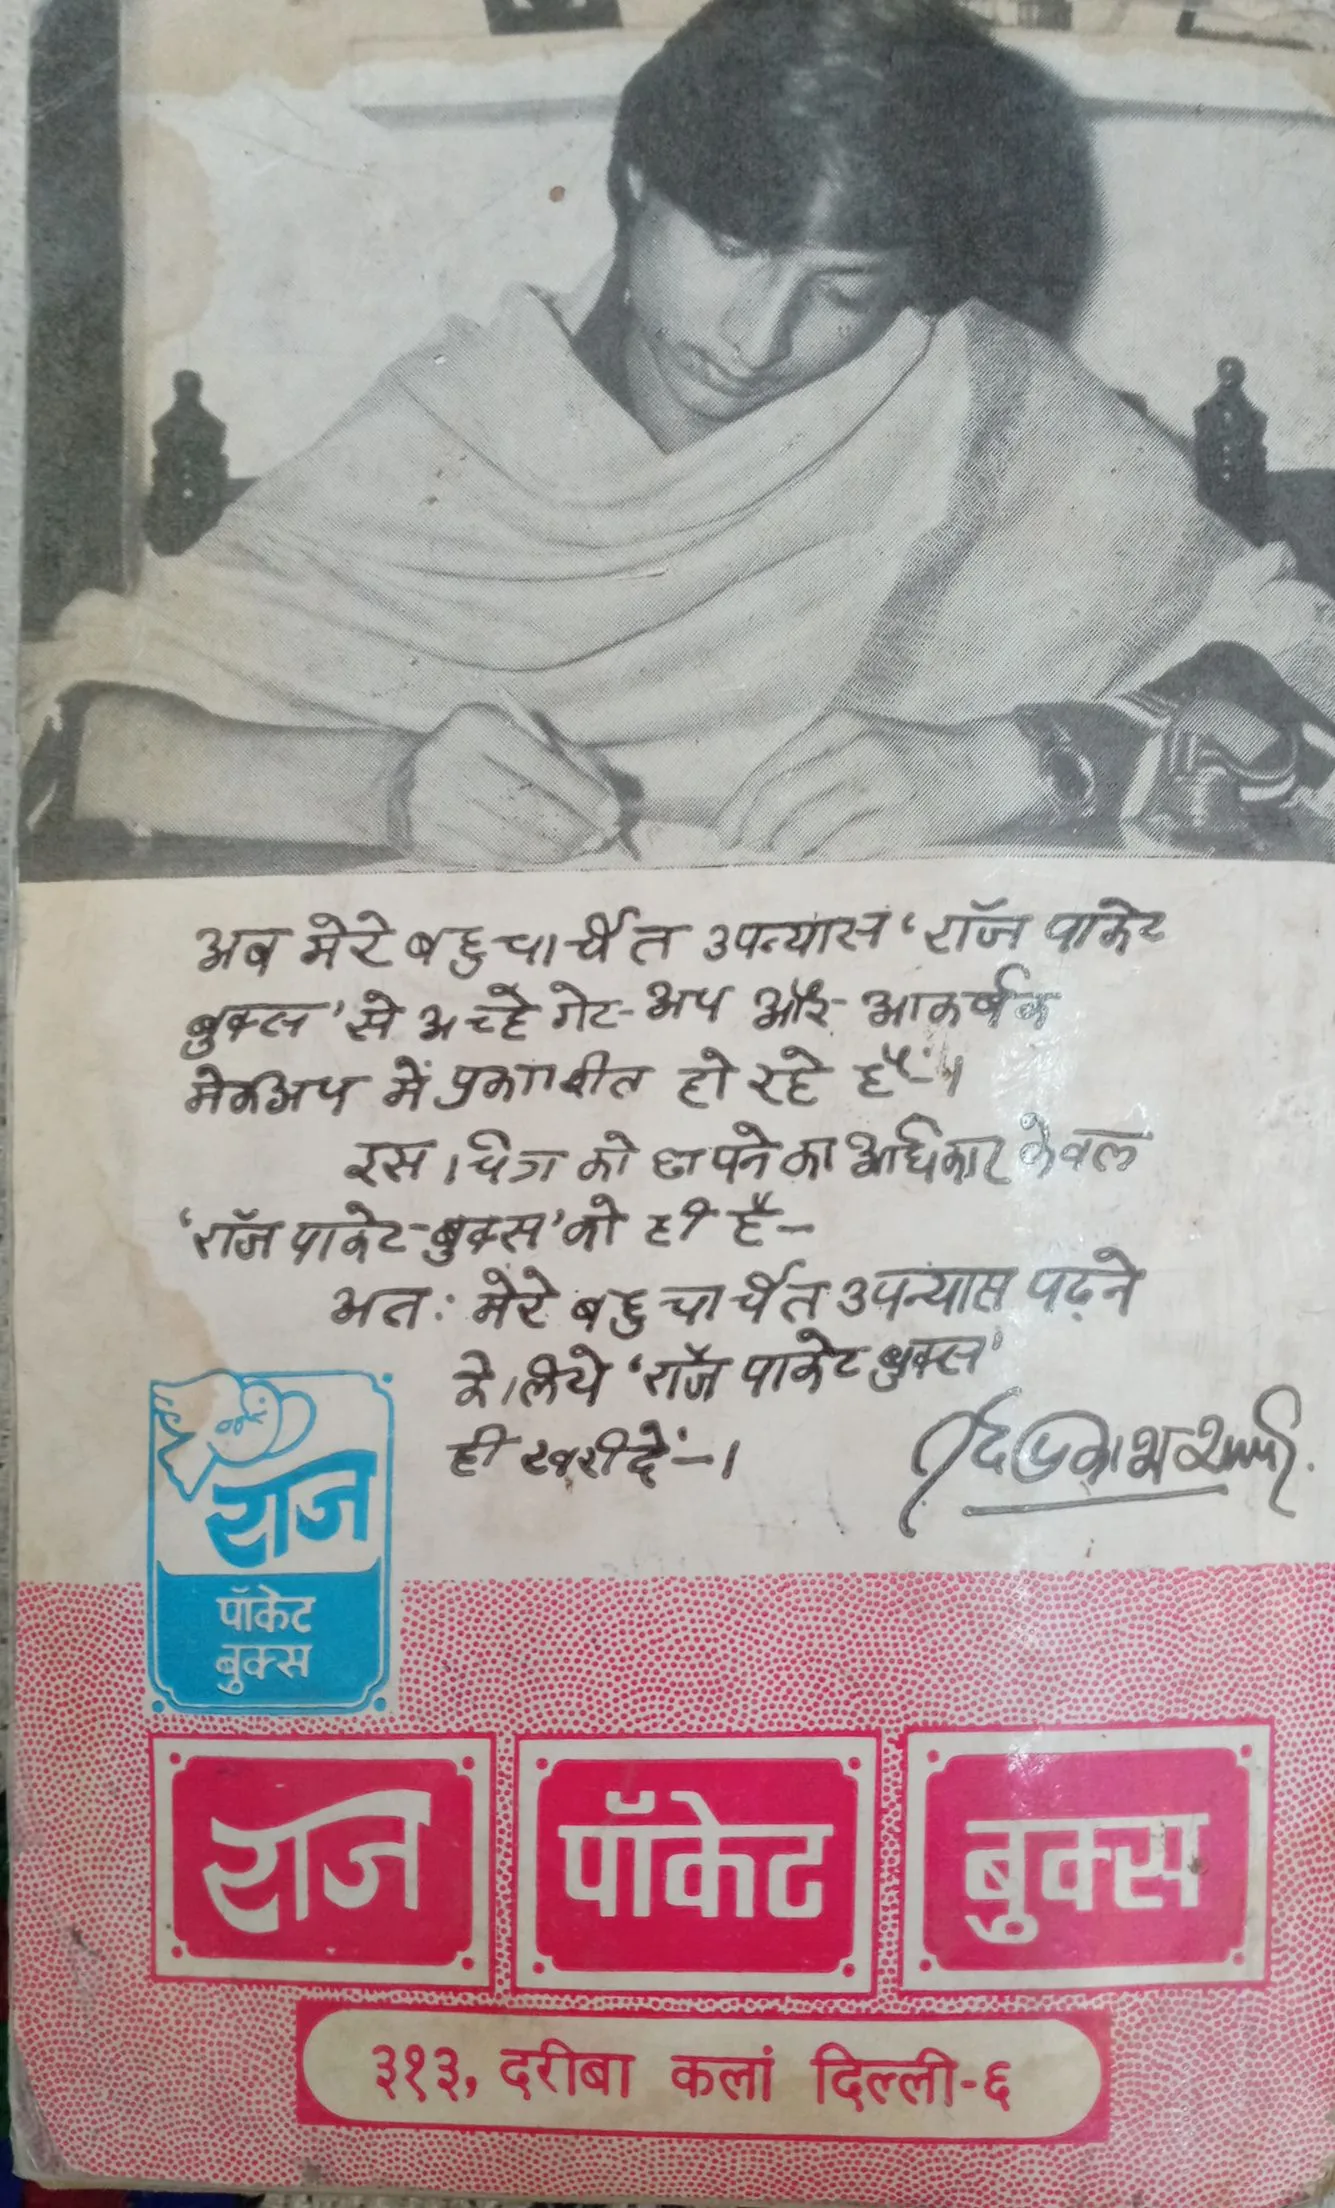 अब मेरे बहुचर्चित उपन्यास ‘रॉज पाकेट
बुक्स’ से अच्छे गेट-अप और आकर्षक
मेकअप में प्रकाशीत हो रहे हैं-।
इस चित्र को छापने का अधिकार केवल
‘रॉज पाकेट-बुक्स’ को ही है-
अतः मेरे बहुचर्चित उपन्यास पढ़ने
के लिये ‘रॉज पाकेट बुक्स’
ही खरीदें-।
वेदप्रकाश शर्मा
राज
पॉकेट
बुक्स
राज पॉकेट बुक्स
३१३, दरीबा कलां दिल्ली-६